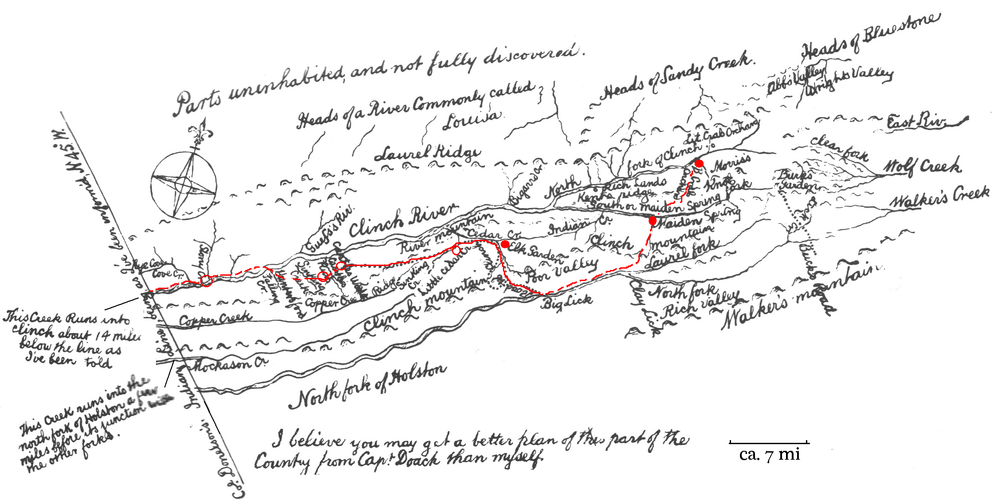 Parts uninhabited, and not fully discovered.
Heads of Bluestone
Heads of Sandy Creek.
Abb's Valley
Wright's Valley
Heads of a River Commonly called
Louisa
Laurel Ridge
East Riv.
Lit Crab Orchard
fork of Clinch
Morriss
Knob
Clear fork
Wolf Creek
Burks
Garden
North
Rich Lands
Kents ridge
South or maiden Spring
fork
Walker's Creek
Clinch River
River mountain
Cedar Cr.
Indian
Cr.
Clinch
Maiden Spring
mountain
Elk Garden
Poor Valley
Laurel fork
Clinch mountain
Copper Cr.
Big Lick
North fork
Rich Valley
Clay Lick
Walker's mountain
Stony Cr.
Cove Cr.
Copper Creek
Mockason Cr.
North fork of Holston
This Creek Runs into
clinch about 14 miles
below the line as
I've been told
This Creek runs into the
north fork of Holston a few
miles before its junction with
the other forks.
Col. Donelsons
Indian
I believe you may get a better plan of this part of the
County from Capt. Doack than myself.
ca. 7 mi